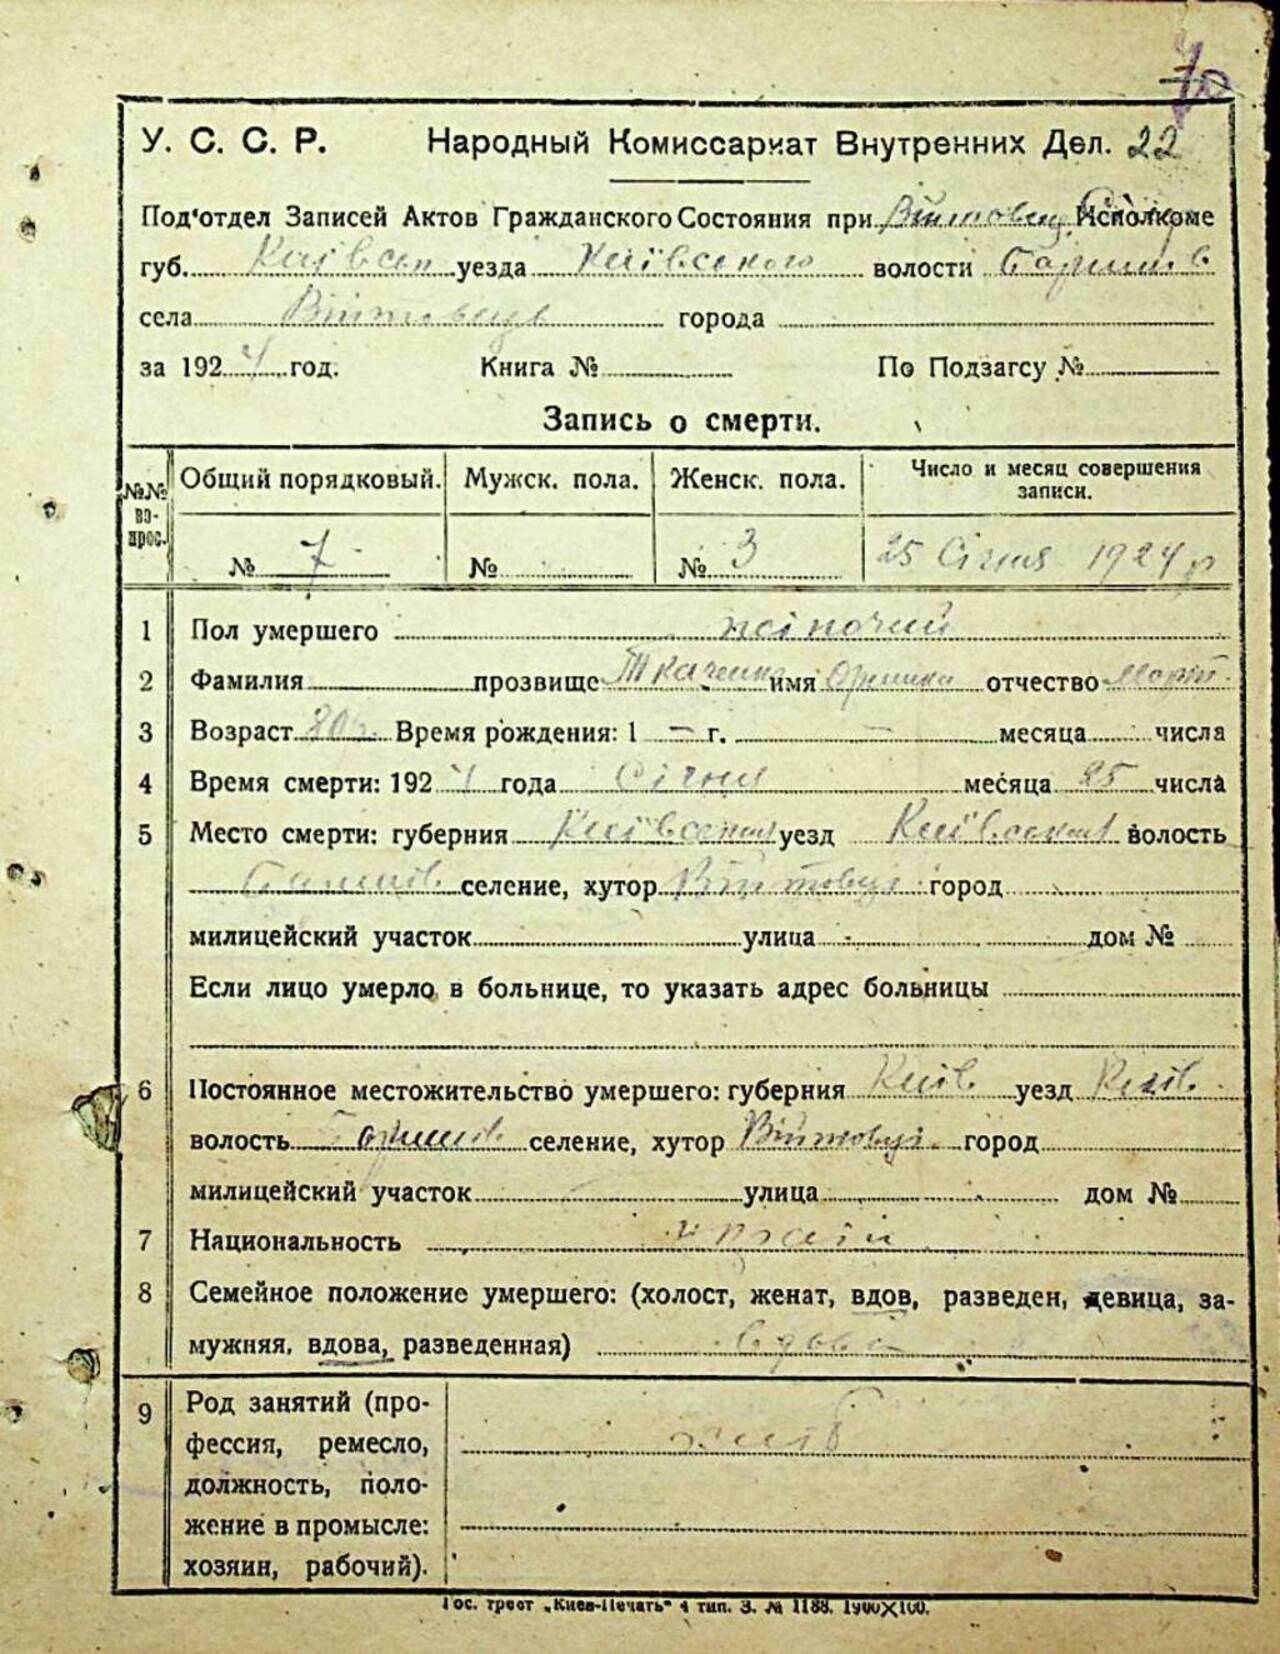 70
У. С. С. Р. Народный Комиссариат Внутренних Дел. 22
Под'отдел Записей Актов Гражданского Состояния при Исполкоме
губ. Київськ уезда Київського волости Баришів
села Війтівців города
за 1924 год. Книга № По Подзагсу №
Запись о смерти.
№№ вопрос. Общий порядковый. Мужск. пола. Женск. пола. Число и месяц совершения записи.
№ 7 № № 3 25 Січня 1924 р
1 Пол умершего жіночий
2 Фамилия прозвище Ткаченко имя Оришка отчество Март.
3 Возраст 80 Время рождения: 1 — г. — месяца числа
4 Время смерти: 1924 года Січня месяца 25 числа
5 Место смерти: губерния Київська уезд Київська волость
Баришів. селение, хутор Війтовці город
милицейский участок улица дом №
Если лицо умерло в больнице, то указать адрес больницы
6 Постоянное местожительство умершего: губерния Київ. уезд Київ.
волость Баришів селение, хутор Війтовці город
милицейский участок улица дом №
7 Национальность
8 Семейное положение умершего: (холост, женат, вдов, разведен, девица, за-
мужняя, вдова, разведенная) вдова
9 Род занятий (про-
фессия, ремесло,
должность, поло-
жение в промысле:
хозяин, рабочий).
Гос. трест „Киев-Печать" 4 тип. З. № 1188. 1900×100.